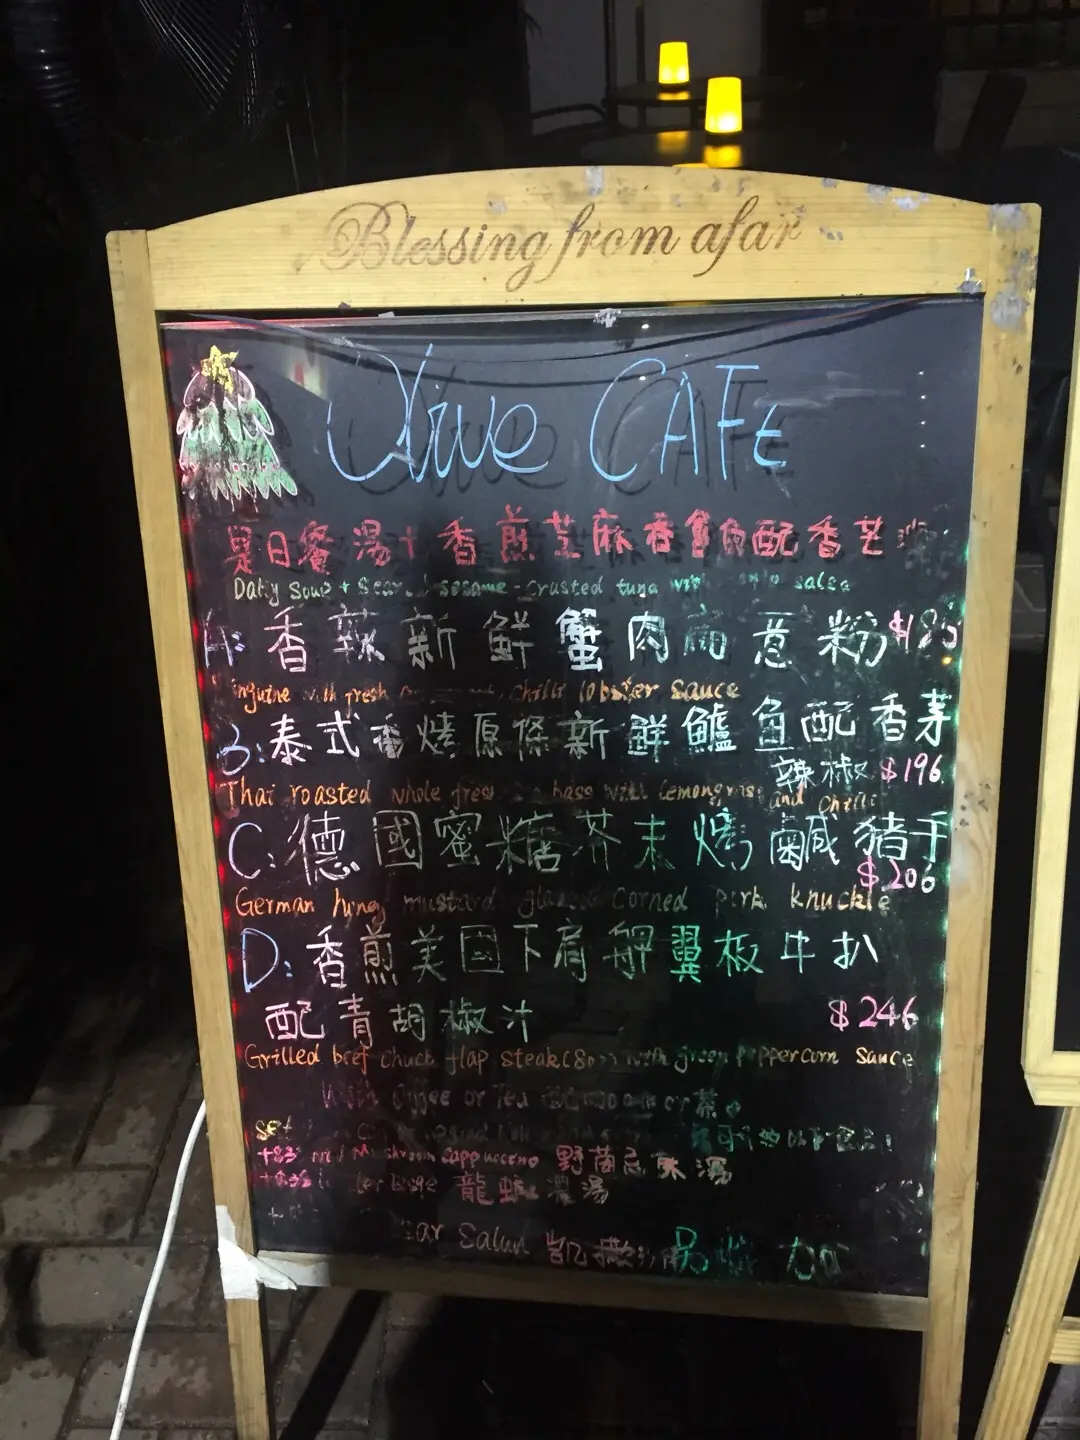 Blessing from afar
Olive CAFE
是日餐湯+香煎芝麻吞拿魚配香芒
Daily Soup + sesame-crusted tuna with salsa
A: 香辣新鮮蟹肉扁意粉
with fresh chilli lobster sauce
B: 泰式香烤原條新鮮鱸魚配香茅
辣椒 $196
Thai roasted whole fresh with Lemongrass and Chilli
C: 德國蜜糖芥末烤鹹豬手
$206
German honey mustard glazed corned pork knuckle
D: 香煎美國下肩胛翼板牛扒
配青胡椒汁 $246
Grilled beef chuck flap steak with green peppercorn sauce
With Coffee or Tea or茶。
set
Mushroom cappuccino 野菌 湯
龍蝦濃湯
凱撒沙